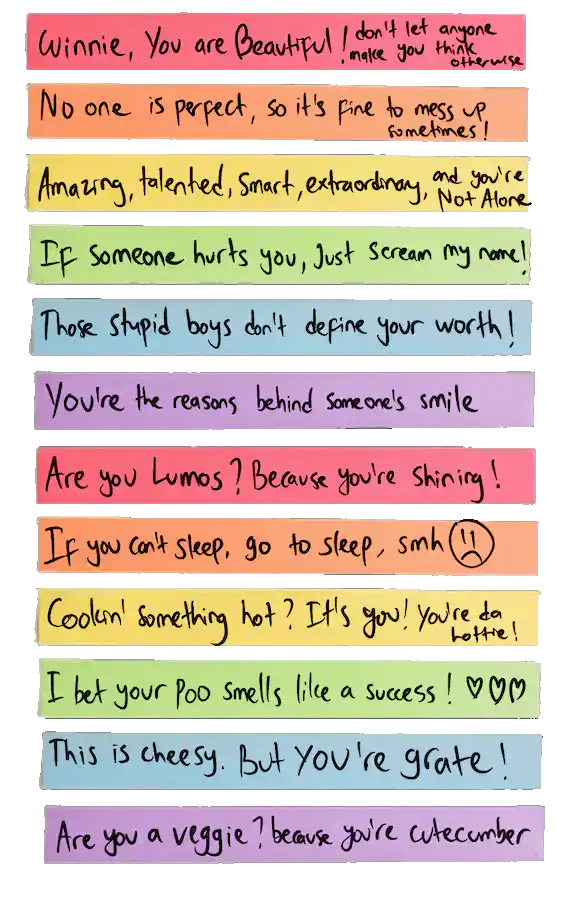 Winnie, You are Beautiful! don't let anyone
make you think
otherwise
No one is perfect, so it's fine to mess up
sometimes!
Amazing, talented, smart, extraordinary, and you're
Not Alone
If someone hurts you, Just scream my name!
Those stupid boys don't define your worth!
You're the reasons behind someone's smile
Are you Lumos? Because you're shining!
If you can't sleep, go to sleep, smh
Cookin' something hot? It's you! You're da
hottie!
I bet your poo smells like a success! ♡♡♡
This is cheesy. But you're grate!
Are you a veggie? because you're cutecumber